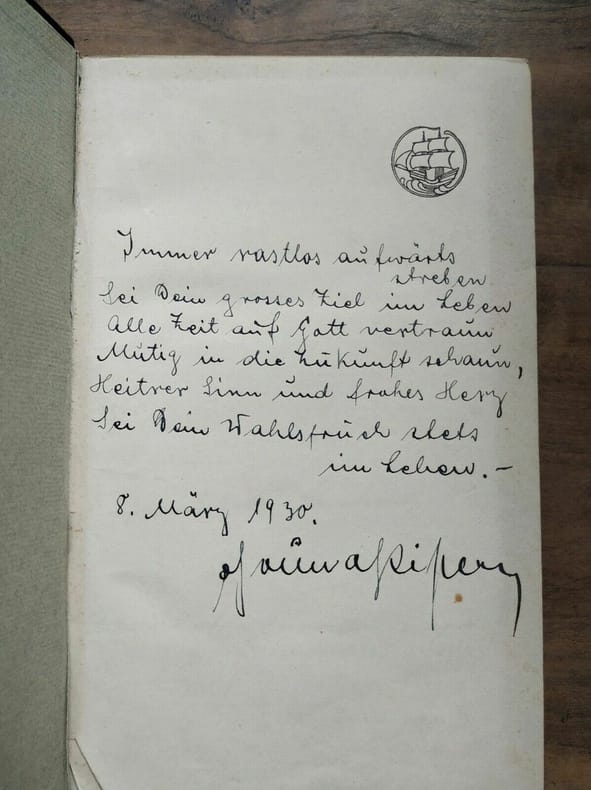 Immer rastlos aufwärts
streben
Sei Dein grosses Ziel im Leben
Alle Zeit auf Gott vertraun
Mutig in die Zukunft schaun,
Heitrer Sinn und frohes Herz
Sei Dein Wahlspruch stets
im Leben. –
8. März 1930.